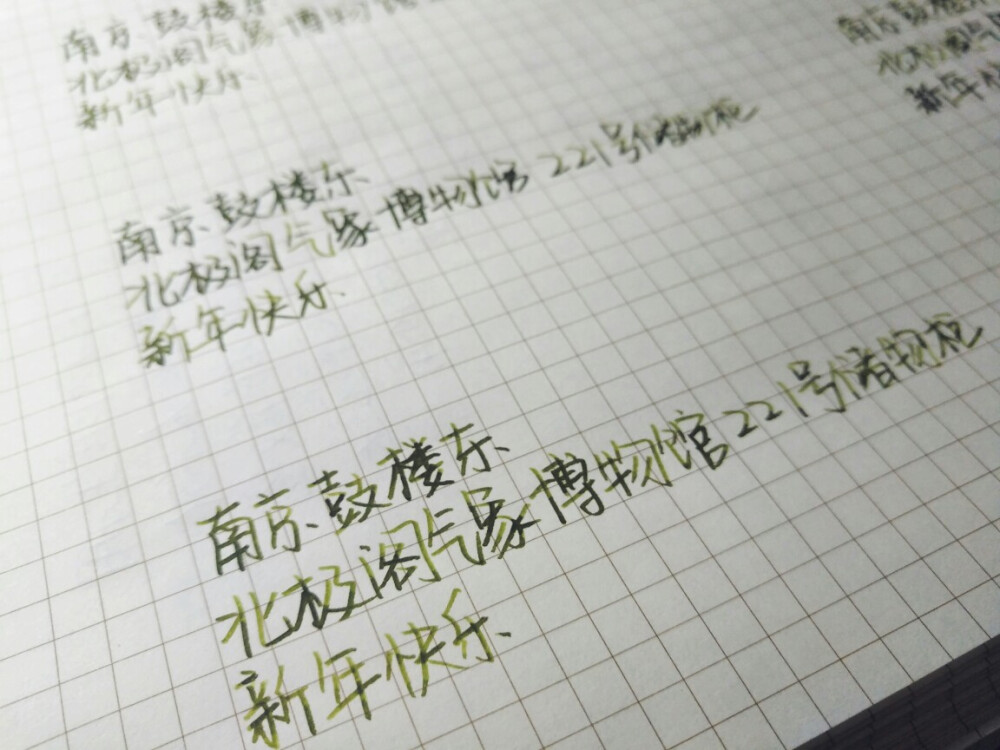 南京鼓楼东
北极阁气象博物
新年快乐
南京鼓楼
北极阁气
新年快
南京鼓楼东
北极阁气象博物馆 221号储物柜
新年快乐
南京鼓楼东
北极阁气象博物馆221号储物柜
新年快乐